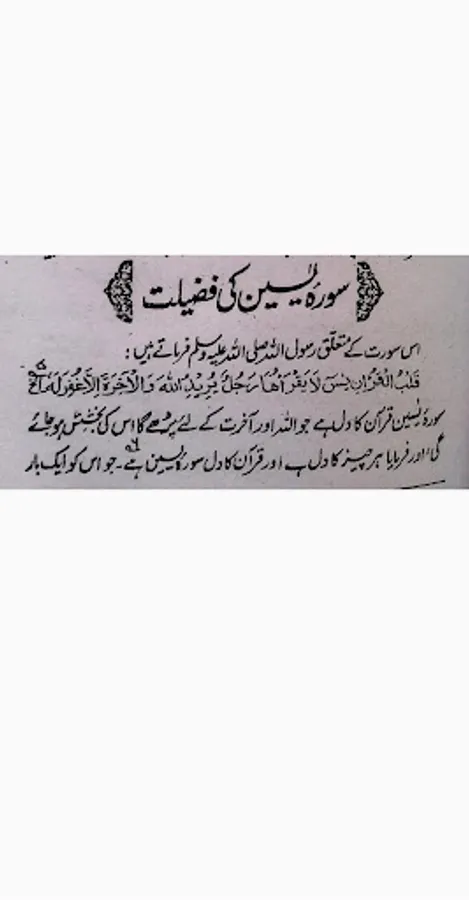 سورۂ یٰسین کی فضیلت
اس سورت کے متعلق رسول اللہ صلی اللہ علیہ وسلم فرماتے ہیں :
قَلْبُ الْقُرْاٰنِ يٰسٓ لَا يَقْرَأُهَا رَجُلٌ يُرِيْدُ اللهَ وَالْاٰخِرَةَ اِلَّا غُفِرَ لَهٗ
سورۂ یٰسین قرآن کا دل ہے جو اللہ اور آخرت کے لئے پڑھے گا اس کی بخشش ہو جائے
گی، اور فرمایا ہر چیز کا دل ہے اور قرآن کا دل سورۂ یٰسین ہے۔ جو اس کو ایک بار